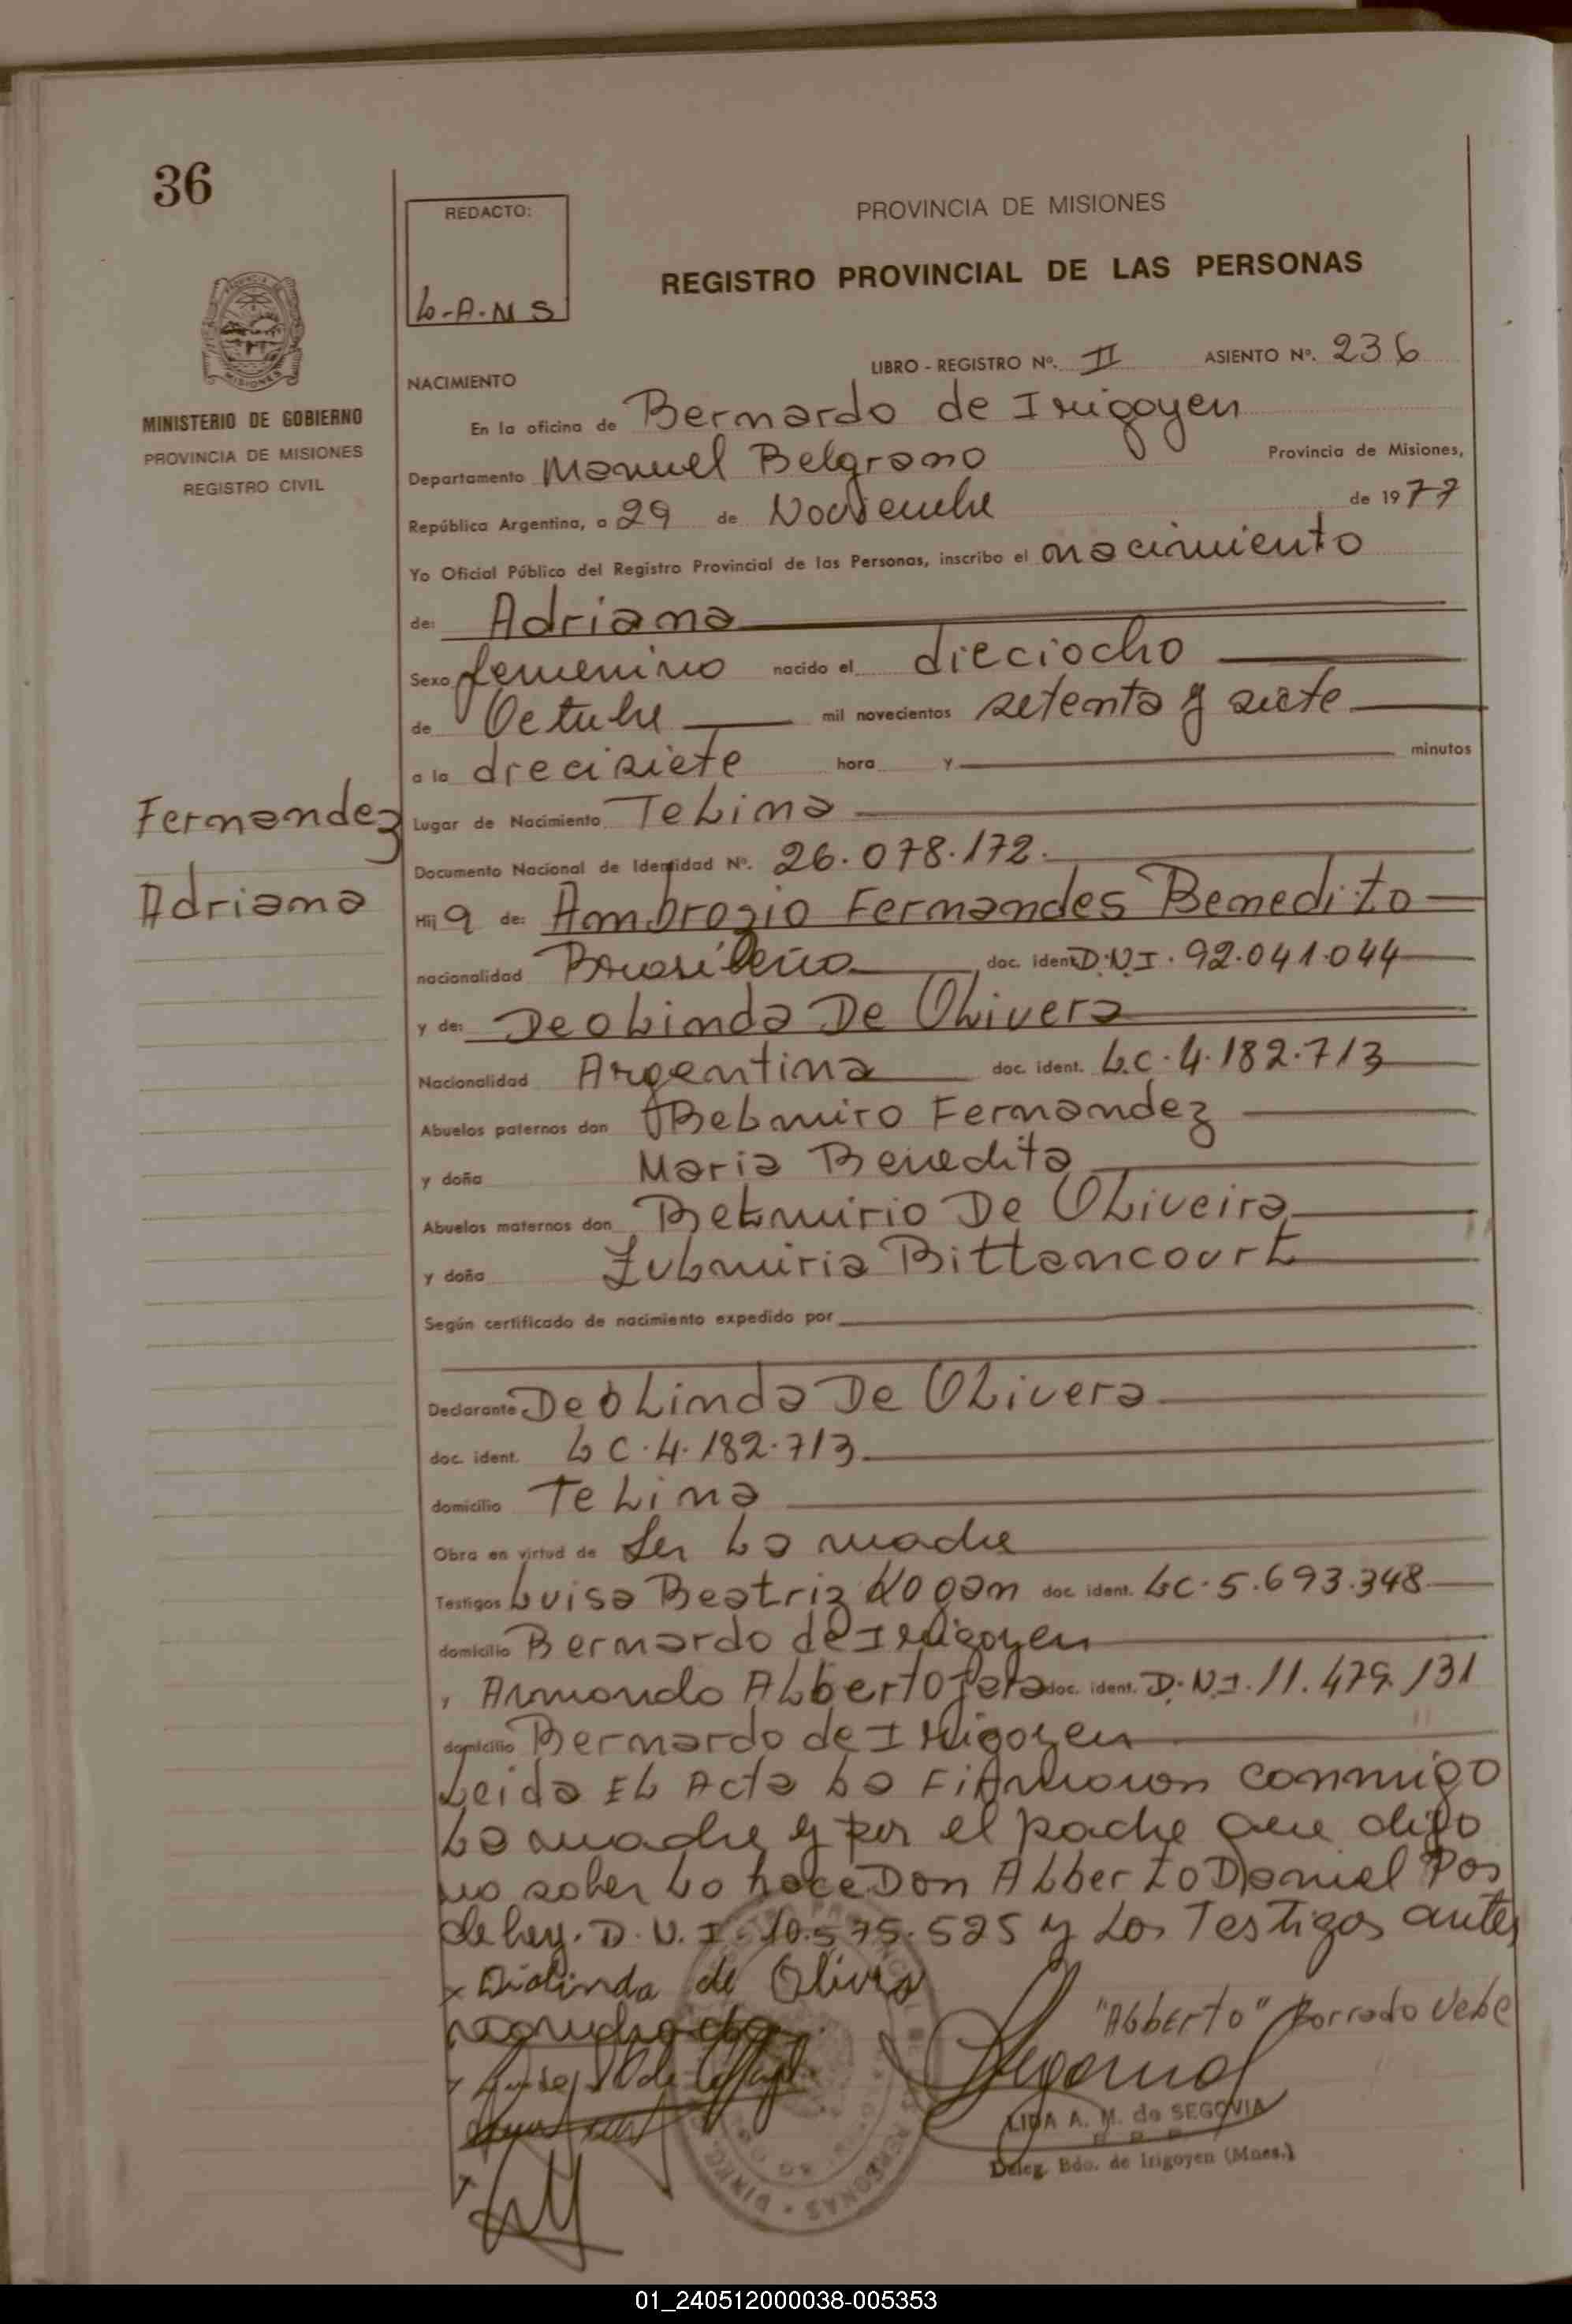 36
REDACTO:
L-A-M S
PROVINCIA DE MISIONES
REGISTRO PROVINCIAL DE LAS PERSONAS
MINISTERIO DE GOBIERNO
PROVINCIA DE MISIONES
REGISTRO CIVIL
LIBRO - REGISTRO Nº. II ASIENTO Nº. 236
NACIMIENTO
En la oficina de Bernardo de Irigoyen
Departamento Manuel Belgrano Provincia de Misiones,
República Argentina, a 29 de Noviembre de 1977
Yo Oficial Público del Registro Provincial de las Personas, inscribo el nacimiento
de: Adriana
Sexo femenino nacido el dieciocho
de Octubre mil novecientos setenta y siete
a la diecisiete hora y minutos
Fernandez
Adriana
Lugar de Nacimiento TeLina
Documento Nacional de Identidad Nº. 26.078.172.
Hij a de: Ambrozio Fernandes Benedito
nacionalidad Brasileña doc. ident. D.N.I. 92.041.044
y de: DeoLinda De OLivera
Nacionalidad Argentina doc. ident. L.C. 4.182.713
Abuelos paternos don BeLmiro Fernandez
y doña Maria Benedita
Abuelos maternos don BeLmirio De OLiveira
y doña ZuLmiria Bittancourt
Según certificado de nacimiento expedido por
Declarante DeoLinda De OLivera
doc. ident. LC. 4.182.713
domicilio TeLina
Obra en virtud de Ser La madre
Testigos Luisa Beatriz doc. ident. LC. 5.693.348
domicilio Bernardo de Irigoyen
y Armando ALberto doc. ident. D.N.I. 11.479.131
domicilio Bernardo de Irigoyen
Leida EL Acta La Firmaron conmigo
La madre y por el padre que dijo
no saber Lo hace Don ALberto Daniel
de Ley. D.N.I. 10.575.525 y Los Testigos antes
x Diolinda de Olivera
"ALberto" Borrado Vale
LIDA A. M. de SEGOVIA
Deleg. Bdo. de Irigoyen (Mnes.)
01_240512000038-005353